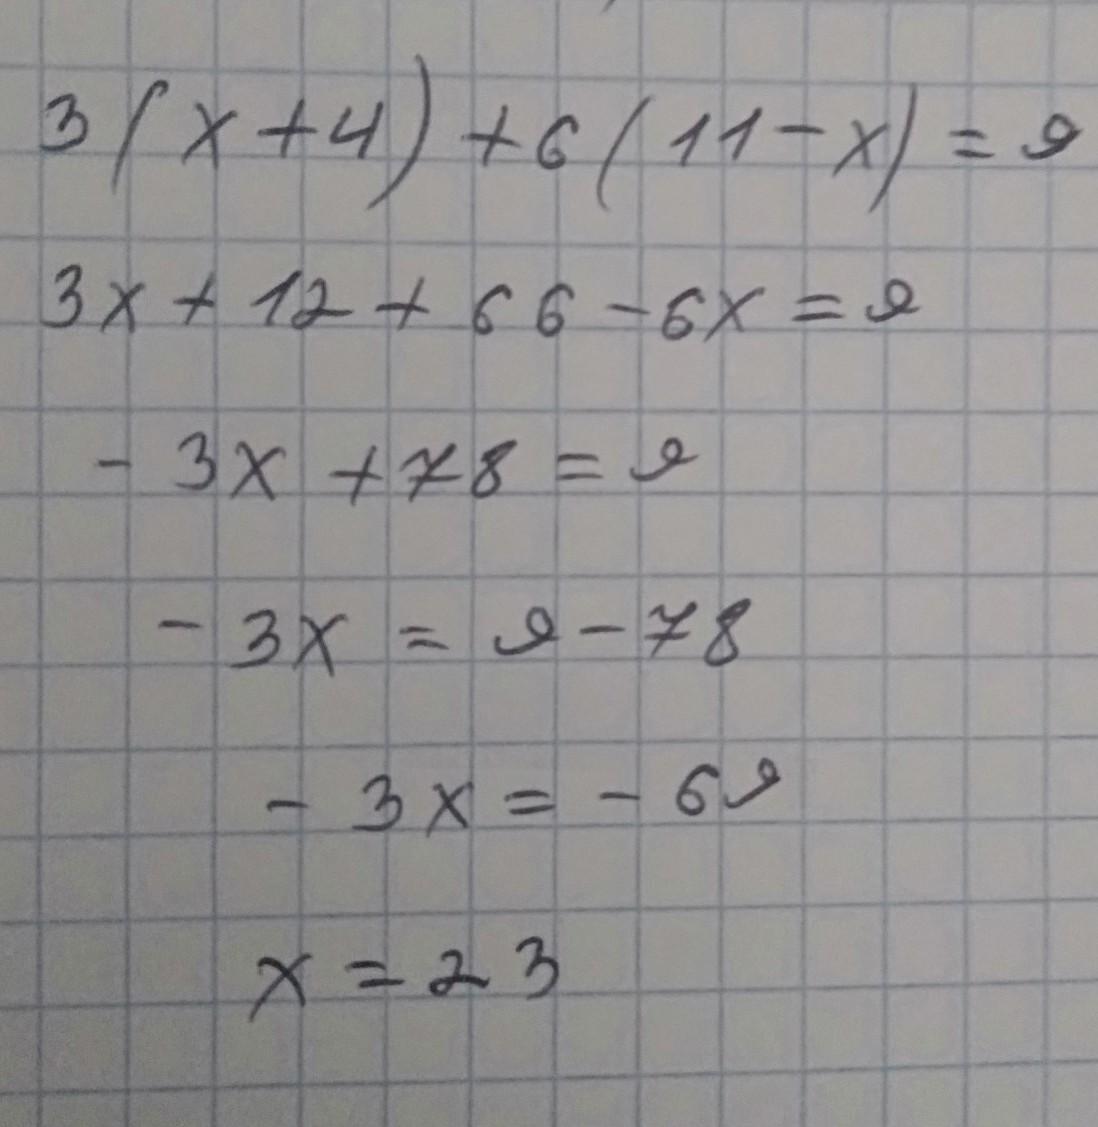 3(x+4)+6(11-x)=9
3x+12+66-6x=9
-3x+78=9
-3x=9-78
-3x=-69
x=23